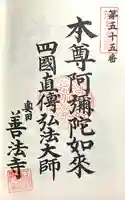 第五十五番
本尊阿彌陀如來
四國直傳弘法大師
善法寺